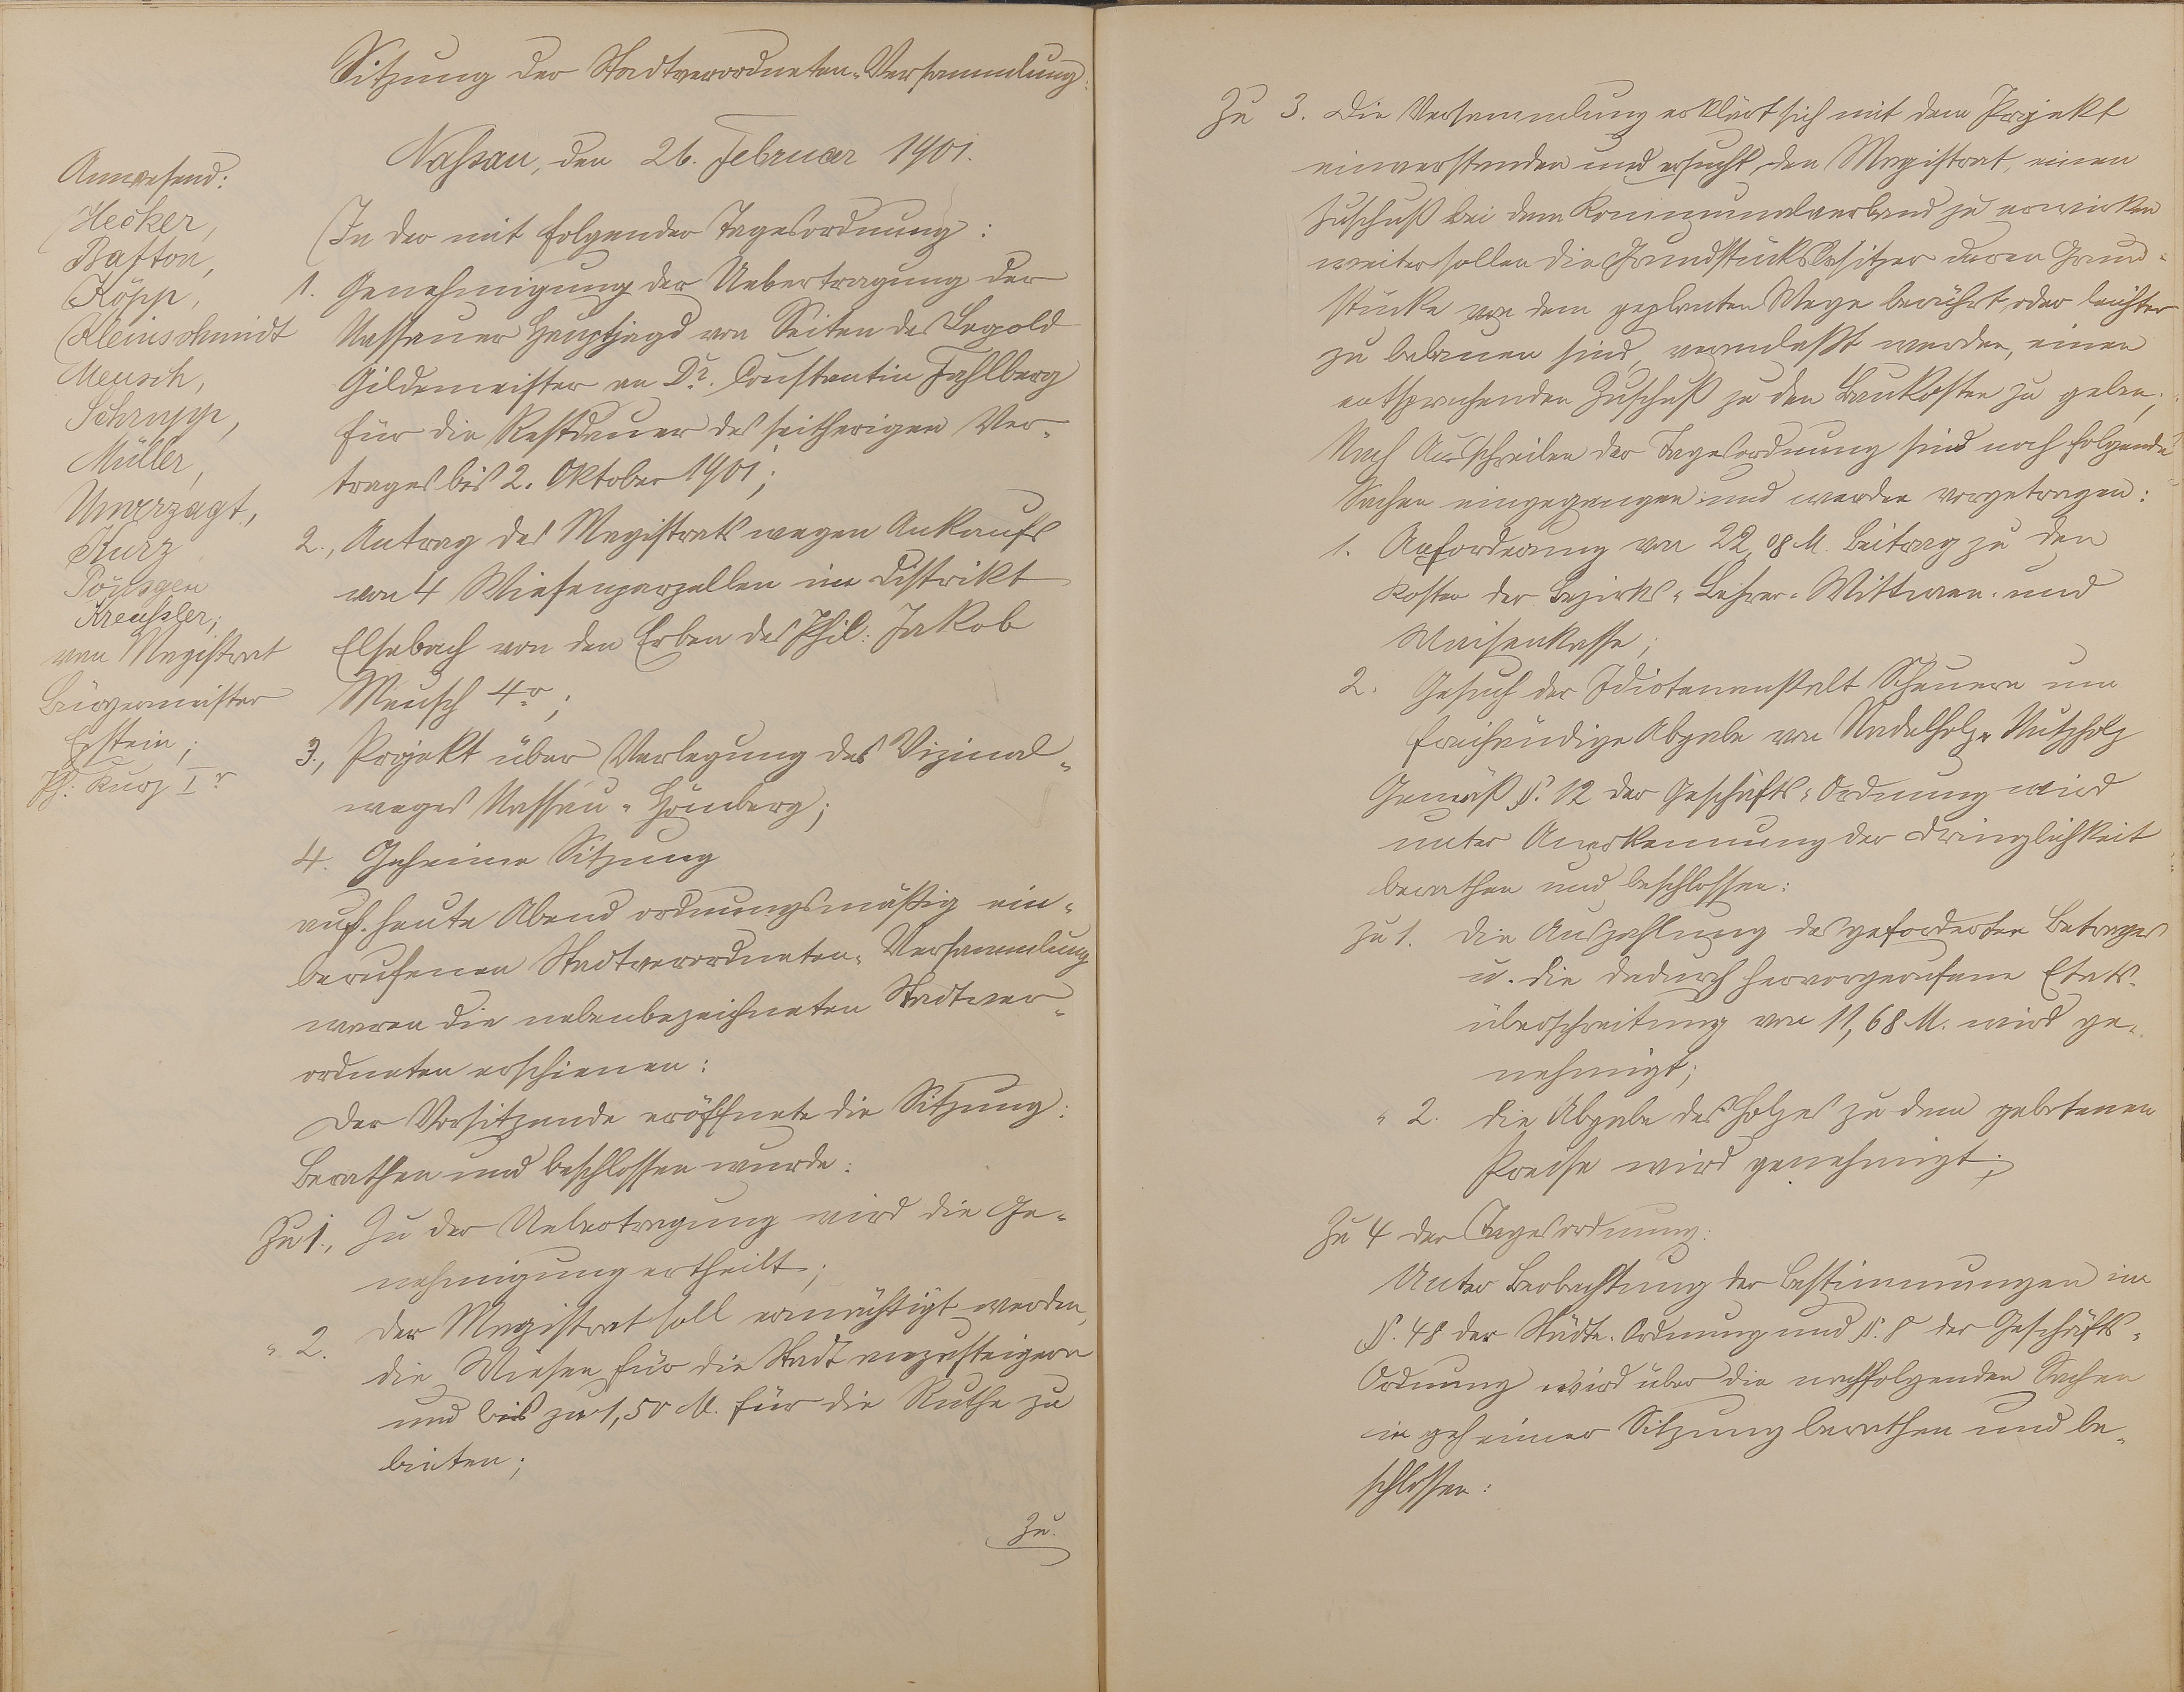 Sitzung der Stadtverordneten-Versammlung.
Nassau, den 26. Februar 1901.
Anwesend:
Hecker,
Bafton,
Köpp,
Kleinschmidt
Meusch,
Schrupp,
Müller,
Unverzagt,
Kurz
Pönsgen
Kreußler,
vom Magistrat
Bürgermeister
Epstein;
Ph: Kurz Ir
In der mit folgender Tagesordnung:
1. Genehmigung der Uebertragung der
Nassauer Hauptjagd von Seiten des Legold
Gildemeister an Dr. Constantin Fahlberg
für die Restdauer des seitherigen Ver-
trages bis 2. Oktober 1901;
2., Antrag des Magistrats wegen Ankaufs
von 4 Wiesenparzellen im Distrikt
Elsebach von den Erben des Phil: Jakob
Meusch 4r;
3., Projekt über Verlegung des Vizinal-
weges Nassau-Hömberg;
4. Geheime Sitzung
auf heute Abend ordnungsmäßig ein-
berufenen Stadtverordneten-Versammlung
waren die nebenbezeichneten Stadtver-
ordneten erschienen:
Der Vorsitzende eröffnete die Sitzung:
Berathen und beschlossen wurde:
Zu 1., Zu der Uebertragung wird die Ge-
nehmigung ertheilt;
" 2. Der Magistrat soll ermächtigt werden,
die Wiesen für die Stadt anzusteigern
und bis zu 1,50 M. für die Ruthe zu
bieten;
Zu.
Zu 3. Die Versammlung erklärt sich mit dem Projekt
einverstanden und ersucht den Magistrat, einen
Zuschuß bei dem Kommunalverband zu erwirken
weiter sollen die Grundstücksbesitzer deren Grund-
stücke von dem geplanten Wege berührt oder leichter
zu bebauen sind, veranlaßt werden, einen
entsprechenden Zuschuß zu den Baukosten zu geben;
Nach Ausschreiben der Tagesordnung sind noch folgende
Sachen eingegangen und werden vorgetragen:
1. Anforderung von 22,08 M. Beitrag zu den
Kosten der Bezirks-Lehrer-Wittwen- und
Waisenkasse;
2. Gesuch der Idiotenanstalt Scheuern um
freihändige Abgabe von Nadelholz-Nutzholz
Gemäß §. 12 der Geschäfts-Ordnung wird
unter Anerkennung der Dringlichkeit
berathen und beschlossen:
Zu 1. Die Auszahlung des geforderten Betrages
u. die dadurch hervorgerufene Etats-
überschreitung von 11,68 M. wird ge-
nehmigt;
" 2. die Abgabe des Holzes zu dem gebotenen
Preise wird genehmigt;
Zu 4 der Tagesordnung:
Unter Beobachtung der Bestimmungen im
§. 48 der Städte-Ordnung und §. 8 der Geschäfts-
Ordnung wird über die nachfolgenden Sachen
in geheimer Sitzung berathen und be-
schlossen: